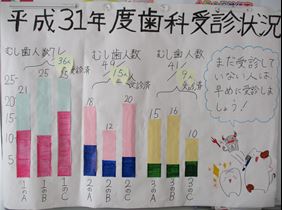 平成31年度歯科受診状況
むし歯人数71
36人受診済
むし歯人数49
15人受診済
むし歯人数41
9人受診済
まだ受診して
いない人は
早めに受診しま
しょう！
25
20
15
10
5
21
25
25
18
12
20
15
16
10
1のA
1のB
1のC
2のA
2のB
2のC
3のA
3のB
3のC